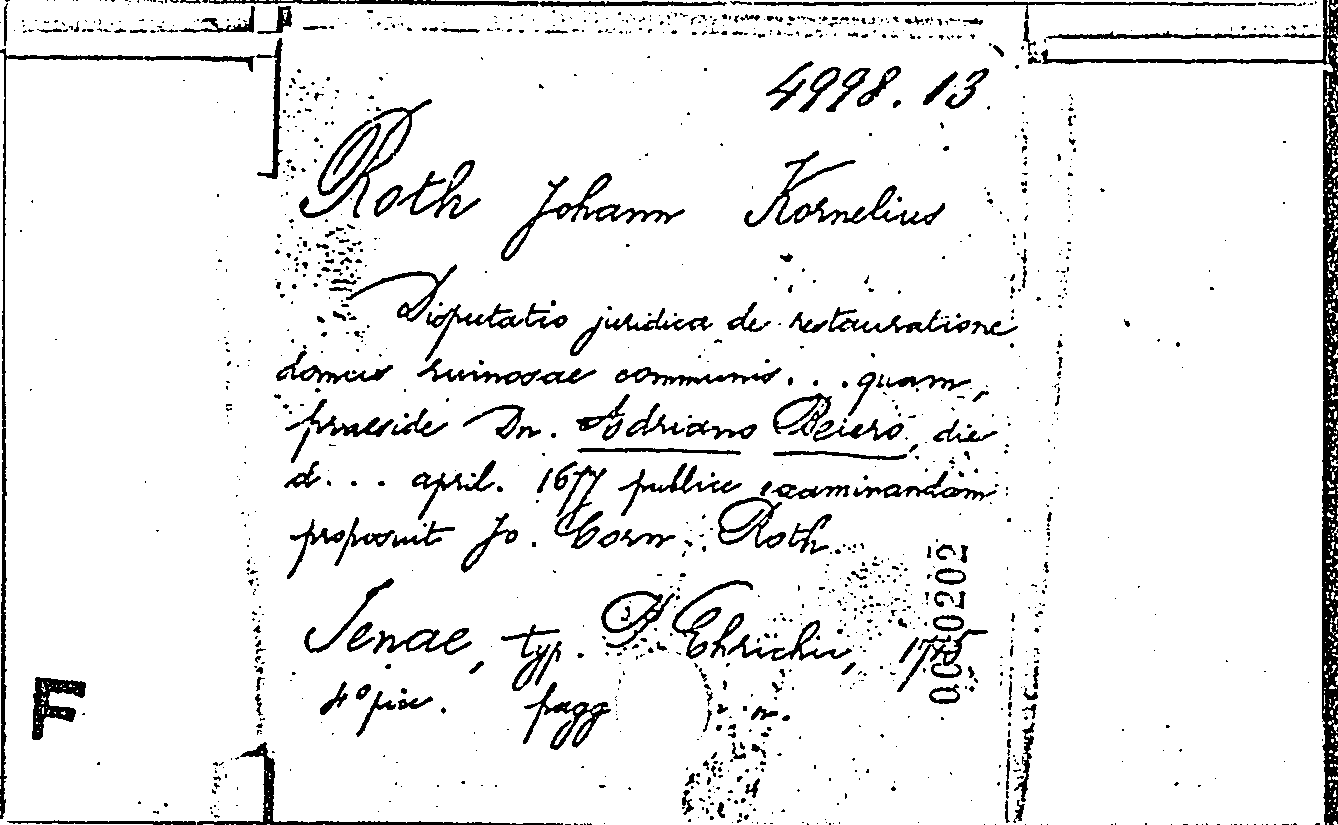 4998.13
Roth Johann Kornelius
Disputatio juridica de restauratione
domus ruinosae communis... quam,
praeside Dn. Adriano Beiero, die
d... april. 1677 publice examinandam
proposuit Jo. Corn. Roth.
Jenae, typ. P. Ehrichii, 1745
4° picc. pagg
000202
F